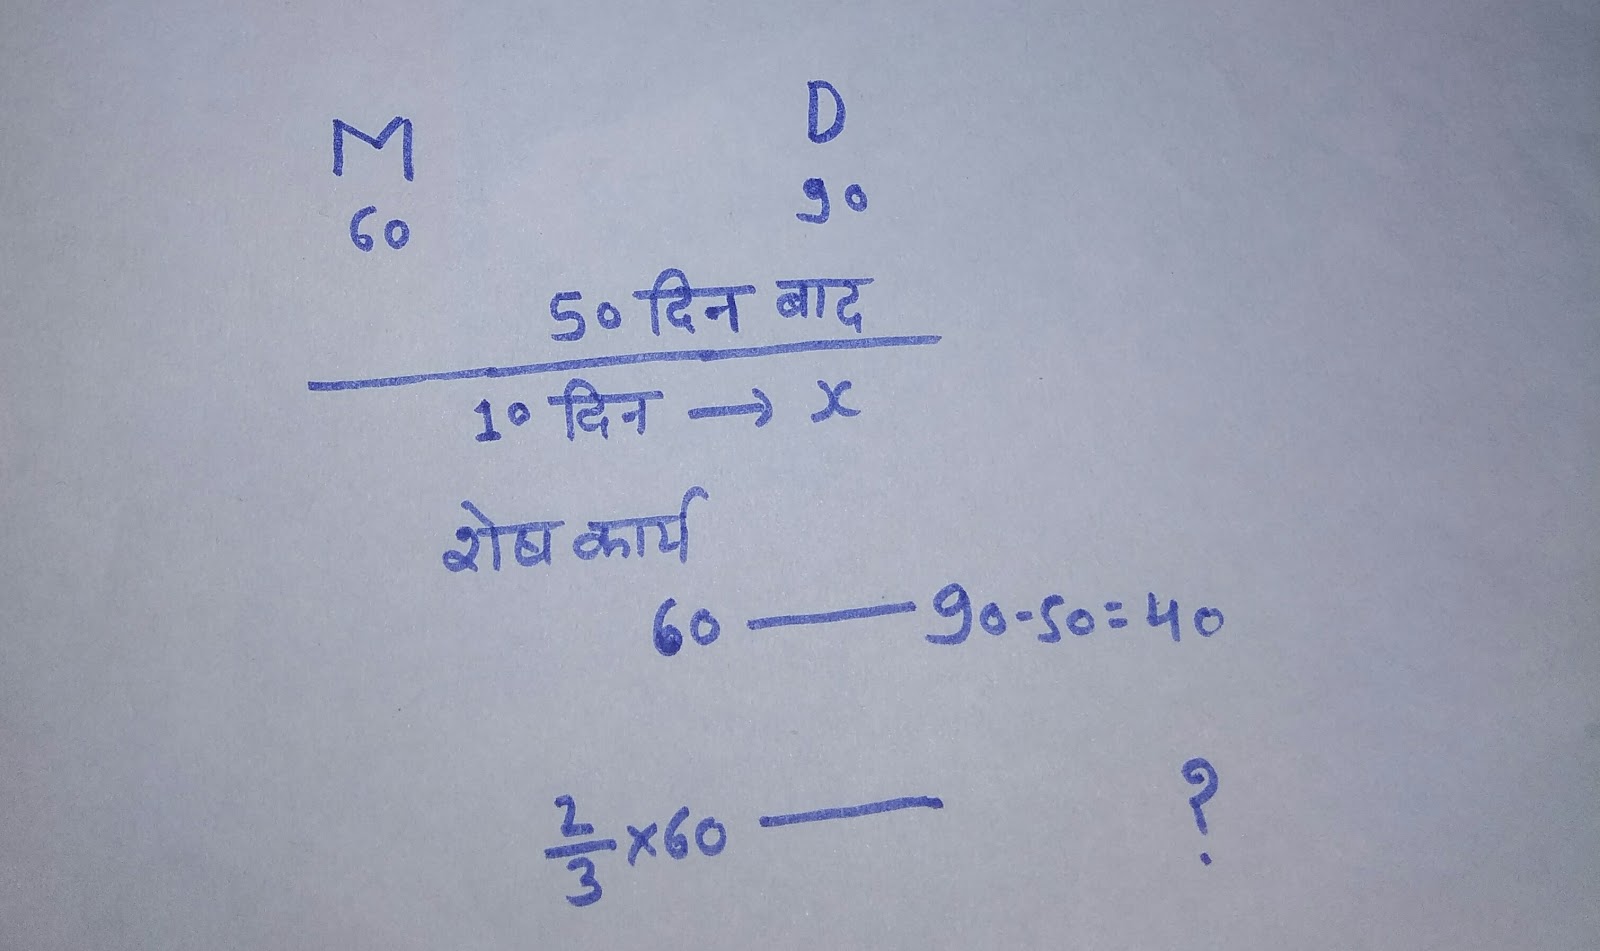 M D
60 90
50 दिन बाद
10 दिन → x
शेष कार्य
60 — 90-50=40
2/3 ×60 — ?